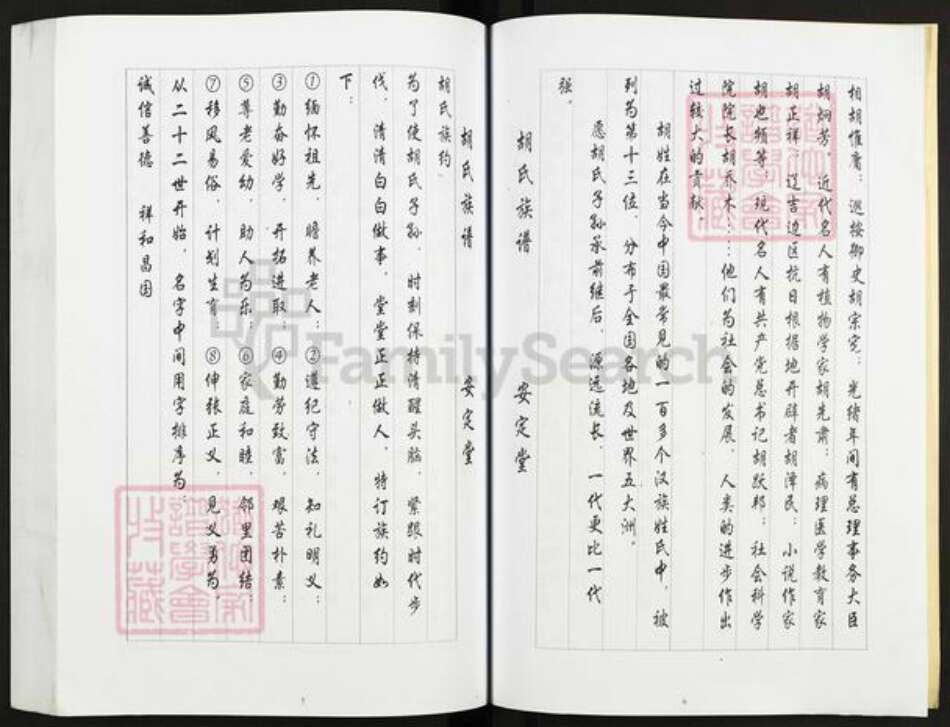 相胡惟庸；巡按御史胡宗宪；光绪年间有总理事务大臣
胡炳芳。近代名人有植物学家胡先肃；病理医学教育家
胡正祥；辽吉边区抗日根据地开辟者胡泽民；小说作家
胡也频等；现代名人有共产党总书记胡跃邦；社会科学
院院长胡乔木……他们为社会的发展，人类的进步作出
过较大的贡献。
胡姓在当今中国最常见的一百多个汉族姓氏中，被
列为第十三位，分布于全国各地及世界五大洲。
愿胡氏子孙承前继后，源远流长，一代更比一代
强。
胡氏族谱 安定堂
胡氏族谱 安定堂
胡氏族约
为了使胡氏子孙，时刻保持清醒头脑，紧跟时代步
伐，清清白白做事，堂堂正正做人，特订族约如
下：
①缅怀祖先，赡养老人；②遵纪守法，知礼明义；
③勤奋好学，开拓进取；④勤劳致富，艰苦朴素；
⑤尊老爱幼，助人为乐；⑥家庭和睦，邻里团结；
⑦移风易俗，计划生育；⑧伸张正义，见义勇为。
从二十二世开始，名字中间用字排序为：
诚信善德 祥和昌国
FamilySearch